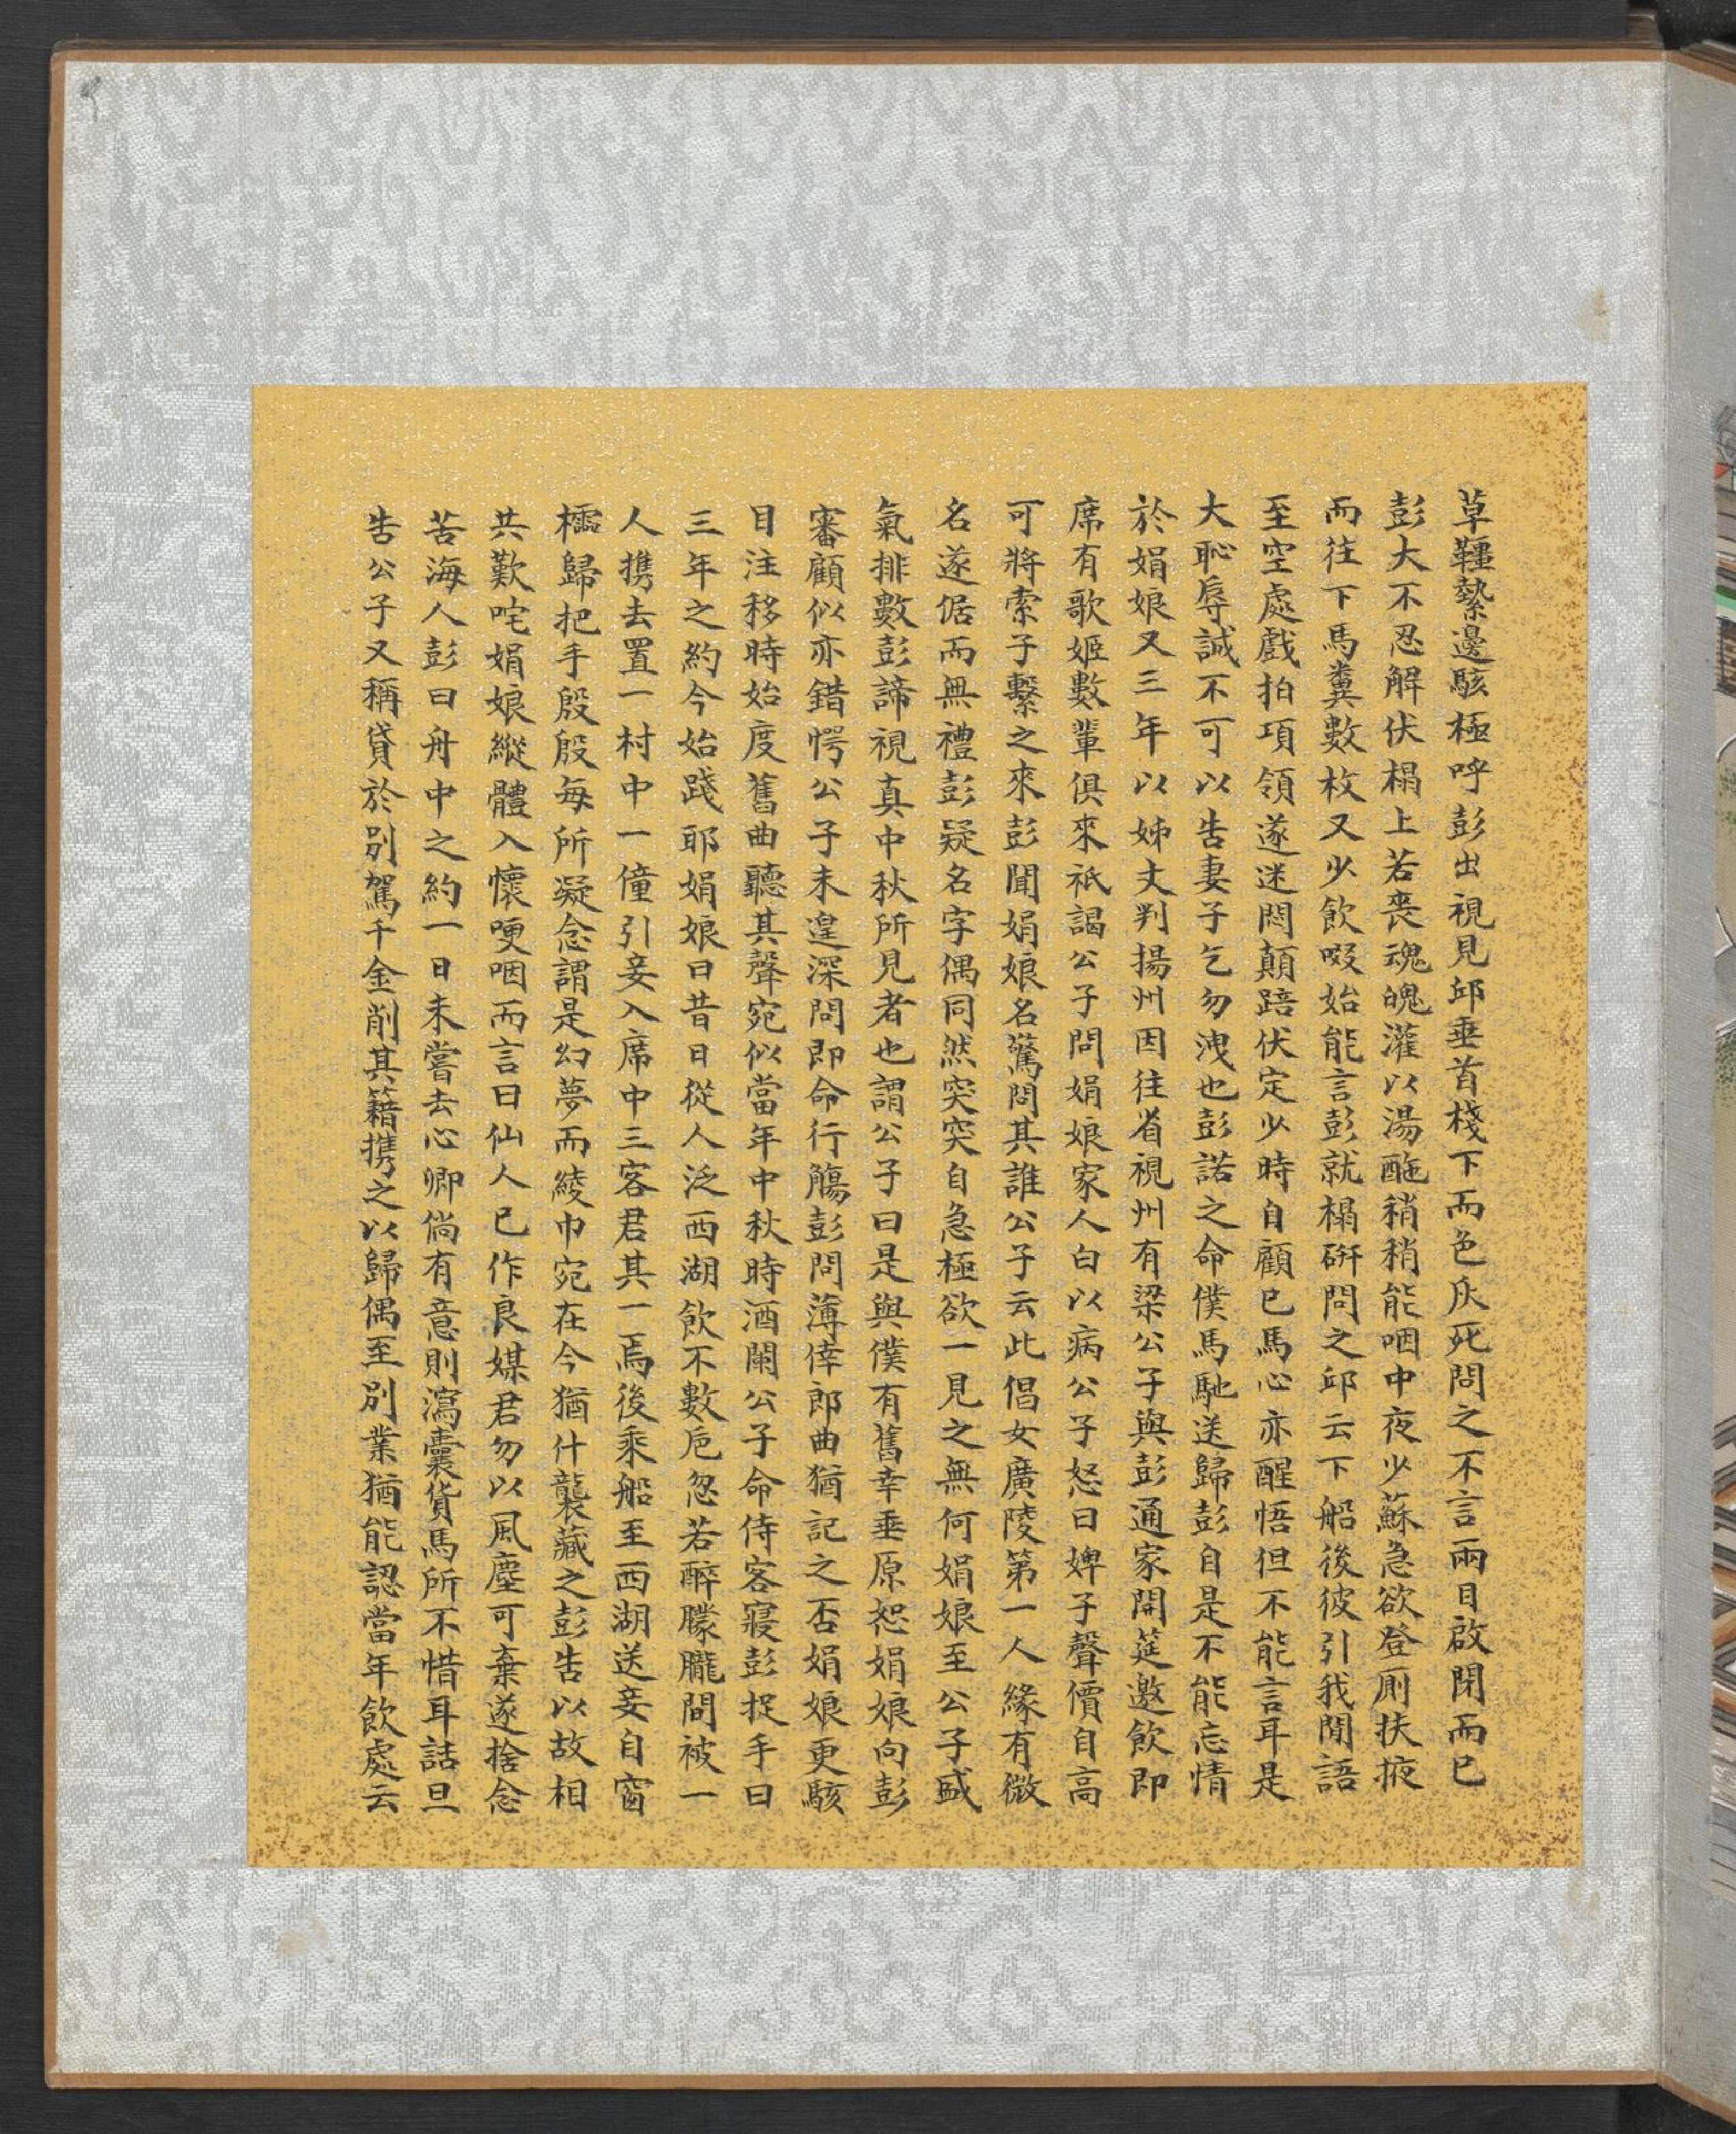 草韁縶邊駭極呼彭出視見邱垂首棧下面色灰死問之不言兩目啟閉而已
彭大不忍解伏榻上若喪魂魄灌以湯酏稍稍能咽中夜少蘇急欲登厠扶掖
而往下馬糞數枚又少飲啜始能言彭就榻研問之邱云下船後彼引我閒語
至空處戲拍項領遂迷悶顛踣伏定少時自顧已馬心亦醒悟但不能言耳是
大恥辱誠不可以告妻子乞勿洩也彭諾之命僕馬馳送歸彭自是不能忘情
於娟娘又三年以姊丈判揚州因往省視州有梁公子與彭通家開筵邀飲即
席有歌姬數輩俱來祇謁公子問娟娘家人白以病公子怒曰婢子聲價自高
可將索子繫之來彭聞娟娘名驚問其誰公子云此倡女廣陵第一人緣有微
名遂倨而無禮彭疑名字偶同然突突自急極欲一見之無何娟娘至公子盛
氣排數彭諦視真中秋所見者也謂公子曰是與僕有舊幸垂原恕娟娘向彭
審顧似亦錯愕公子未遑深問即命行觴彭問薄倖郎曲猶記之否娟娘更駭
目注移時始度舊曲聽其聲宛似當年中秋時酒闌公子命侍客寢彭捉手曰
三年之約今始踐耶娟娘曰昔日從人泛西湖飲不數卮忽若醉朦朧間被一
人携去置一村中一僮引妾入席中三客君其一焉後乘船至西湖送妾自窗
櫺歸把手殷殷每所凝念謂是幻夢而綾巾宛在今猶什襲藏之彭告以故相
共歎咤娟娘縱體入懷哽咽而言曰仙人已作良媒君勿以風塵可棄遂捨念
苦海人彭曰舟中之約一日未嘗去心卿倘有意則瀉囊貨馬所不惜耳詰旦
告公子又稱貸於別駕千金削其籍携之以歸偶至別業猶能認當年飲處云